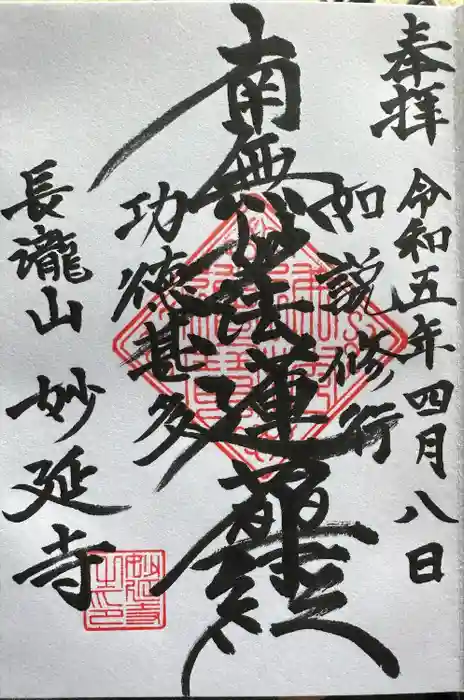 奉拝 令和五年四月八日
如説修行
南無妙法蓮華経
功徳甚多
長瀧山 妙延寺